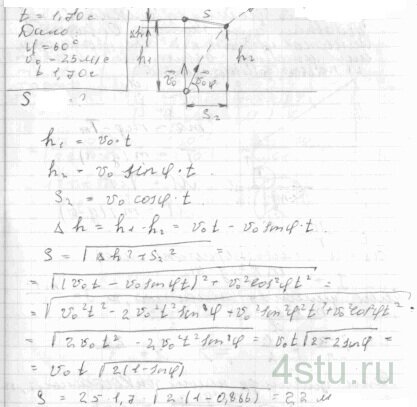 t = 1,70 c
Дано
φ = 60°
v₀ = 25 м/с
t 1,70 c
S = ?
Δh
h₁
S
h₂
v⃗₀
v⃗₀ φ
S₂
h₁ = v₀·t
h₂ = v₀ sinφ·t
S₂ = v₀ cosφ·t
Δh = h₁ - h₂ = v₀t - v₀sinφ·t
S = √(Δh² + S₂²) =
= √((v₀t - v₀sinφt)² + v₀²cos²φt²) =
= √(v₀²t² - 2v₀²t²sinφ + v₀²sin²φt² + v₀²cos²φt²) =
= √(2v₀t² - 2v₀²t²sinφ) = v₀t√(2 - 2sinφ) =
= v₀t √(2(1-sinφ))
S = 25·1,7·√(2·(1-0,866)) = 22 м
4stu.ru